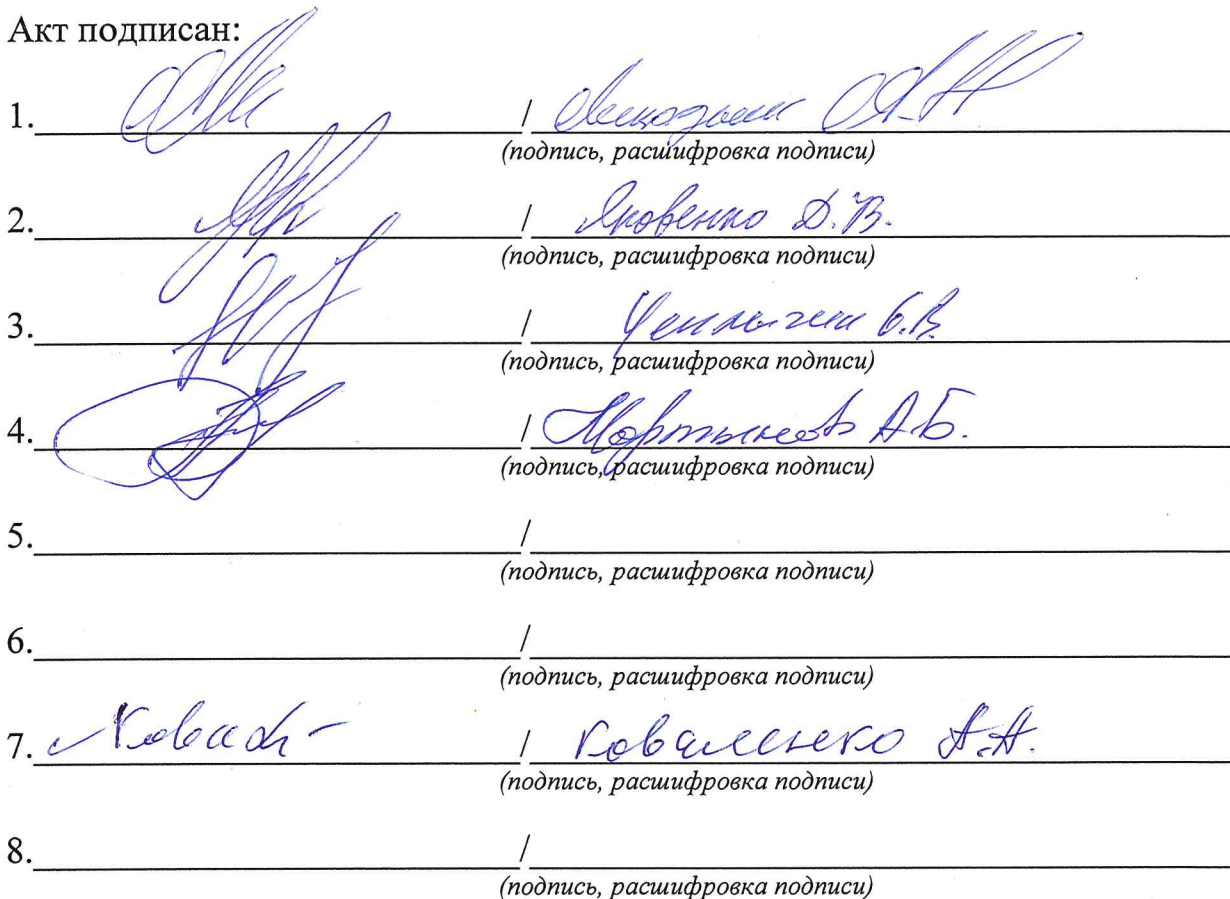 Акт подписан:
1. /
(подпись, расшифровка подписи)
2. / Яковенко Д.В.
(подпись, расшифровка подписи)
3. /
(подпись, расшифровка подписи)
4. / Мартынов А.Б.
(подпись, расшифровка подписи)
5. /
(подпись, расшифровка подписи)
6. /
(подпись, расшифровка подписи)
7. / Коваленко А.А.
(подпись, расшифровка подписи)
8. /
(подпись, расшифровка подписи)